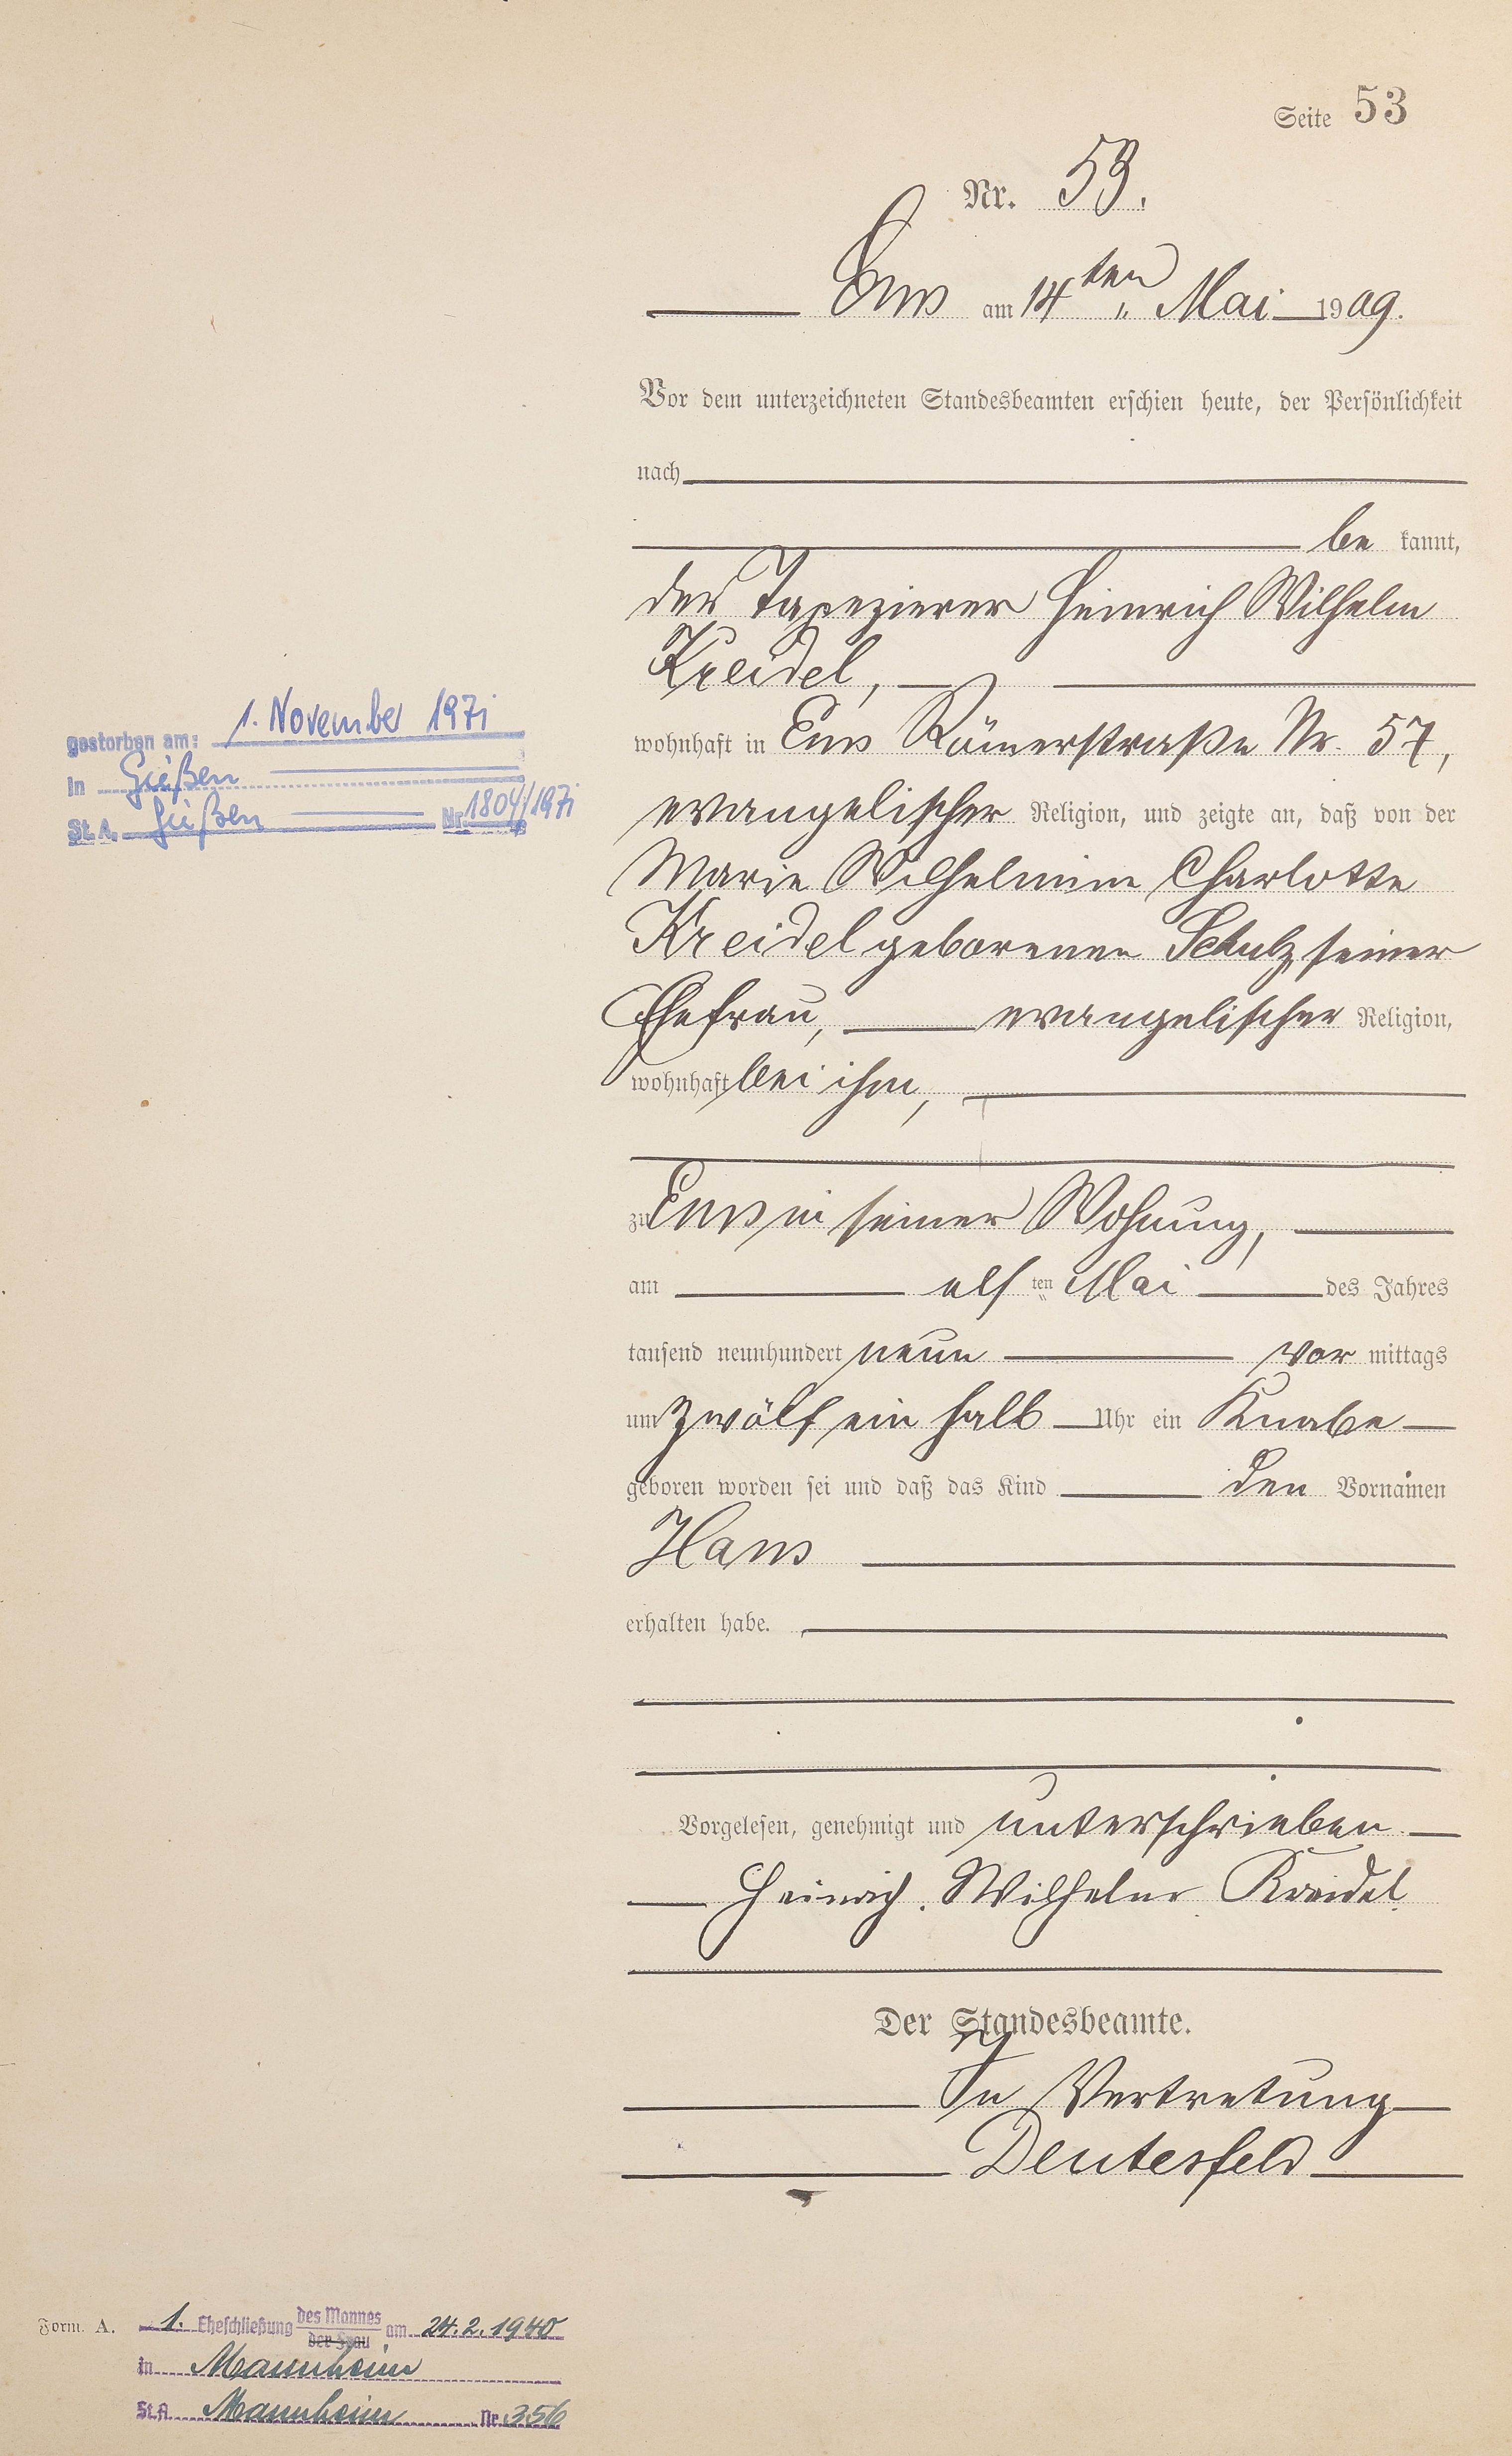 Seite 53
Nr. 53.
Ems am 14ten „ Mai 1909.
Vor dem unterzeichneten Standesbeamten erschien heute, der Persönlichkeit
nach
be kannt,
der Tapezierer Heinrich Wilhelm
Kreidel,
wohnhaft in Ems Römerstraße Nr. 57,
evangelischer Religion, und zeigte an, daß von der
Marie Wilhelmine Charlotte
Kreidel geborenen Schulz seiner
Ehefrau, evangelischer Religion,
wohnhaft bei ihm,
zu Ems in seiner Wohnung,
am elf ten Mai des Jahres
tausend neunhundert neun vor mittags
um zwölf ein halb Uhr ein Knabe
geboren worden sei und daß das Kind den Vornamen
Hans
erhalten habe.
Vorgelesen, genehmigt und unterschrieben
Heinrich Wilhelm Kreidel
Der Standesbeamte.
In Vertretung
Deutesfeld
gestorben am: 1. November 1971
in Gießen
St. A. Gießen Nr. 1804/1971
Form. A.
1. Eheschließung des Mannes der Frau am 24.2.1940
in Mannheim
St.A. Mannheim Nr. 356